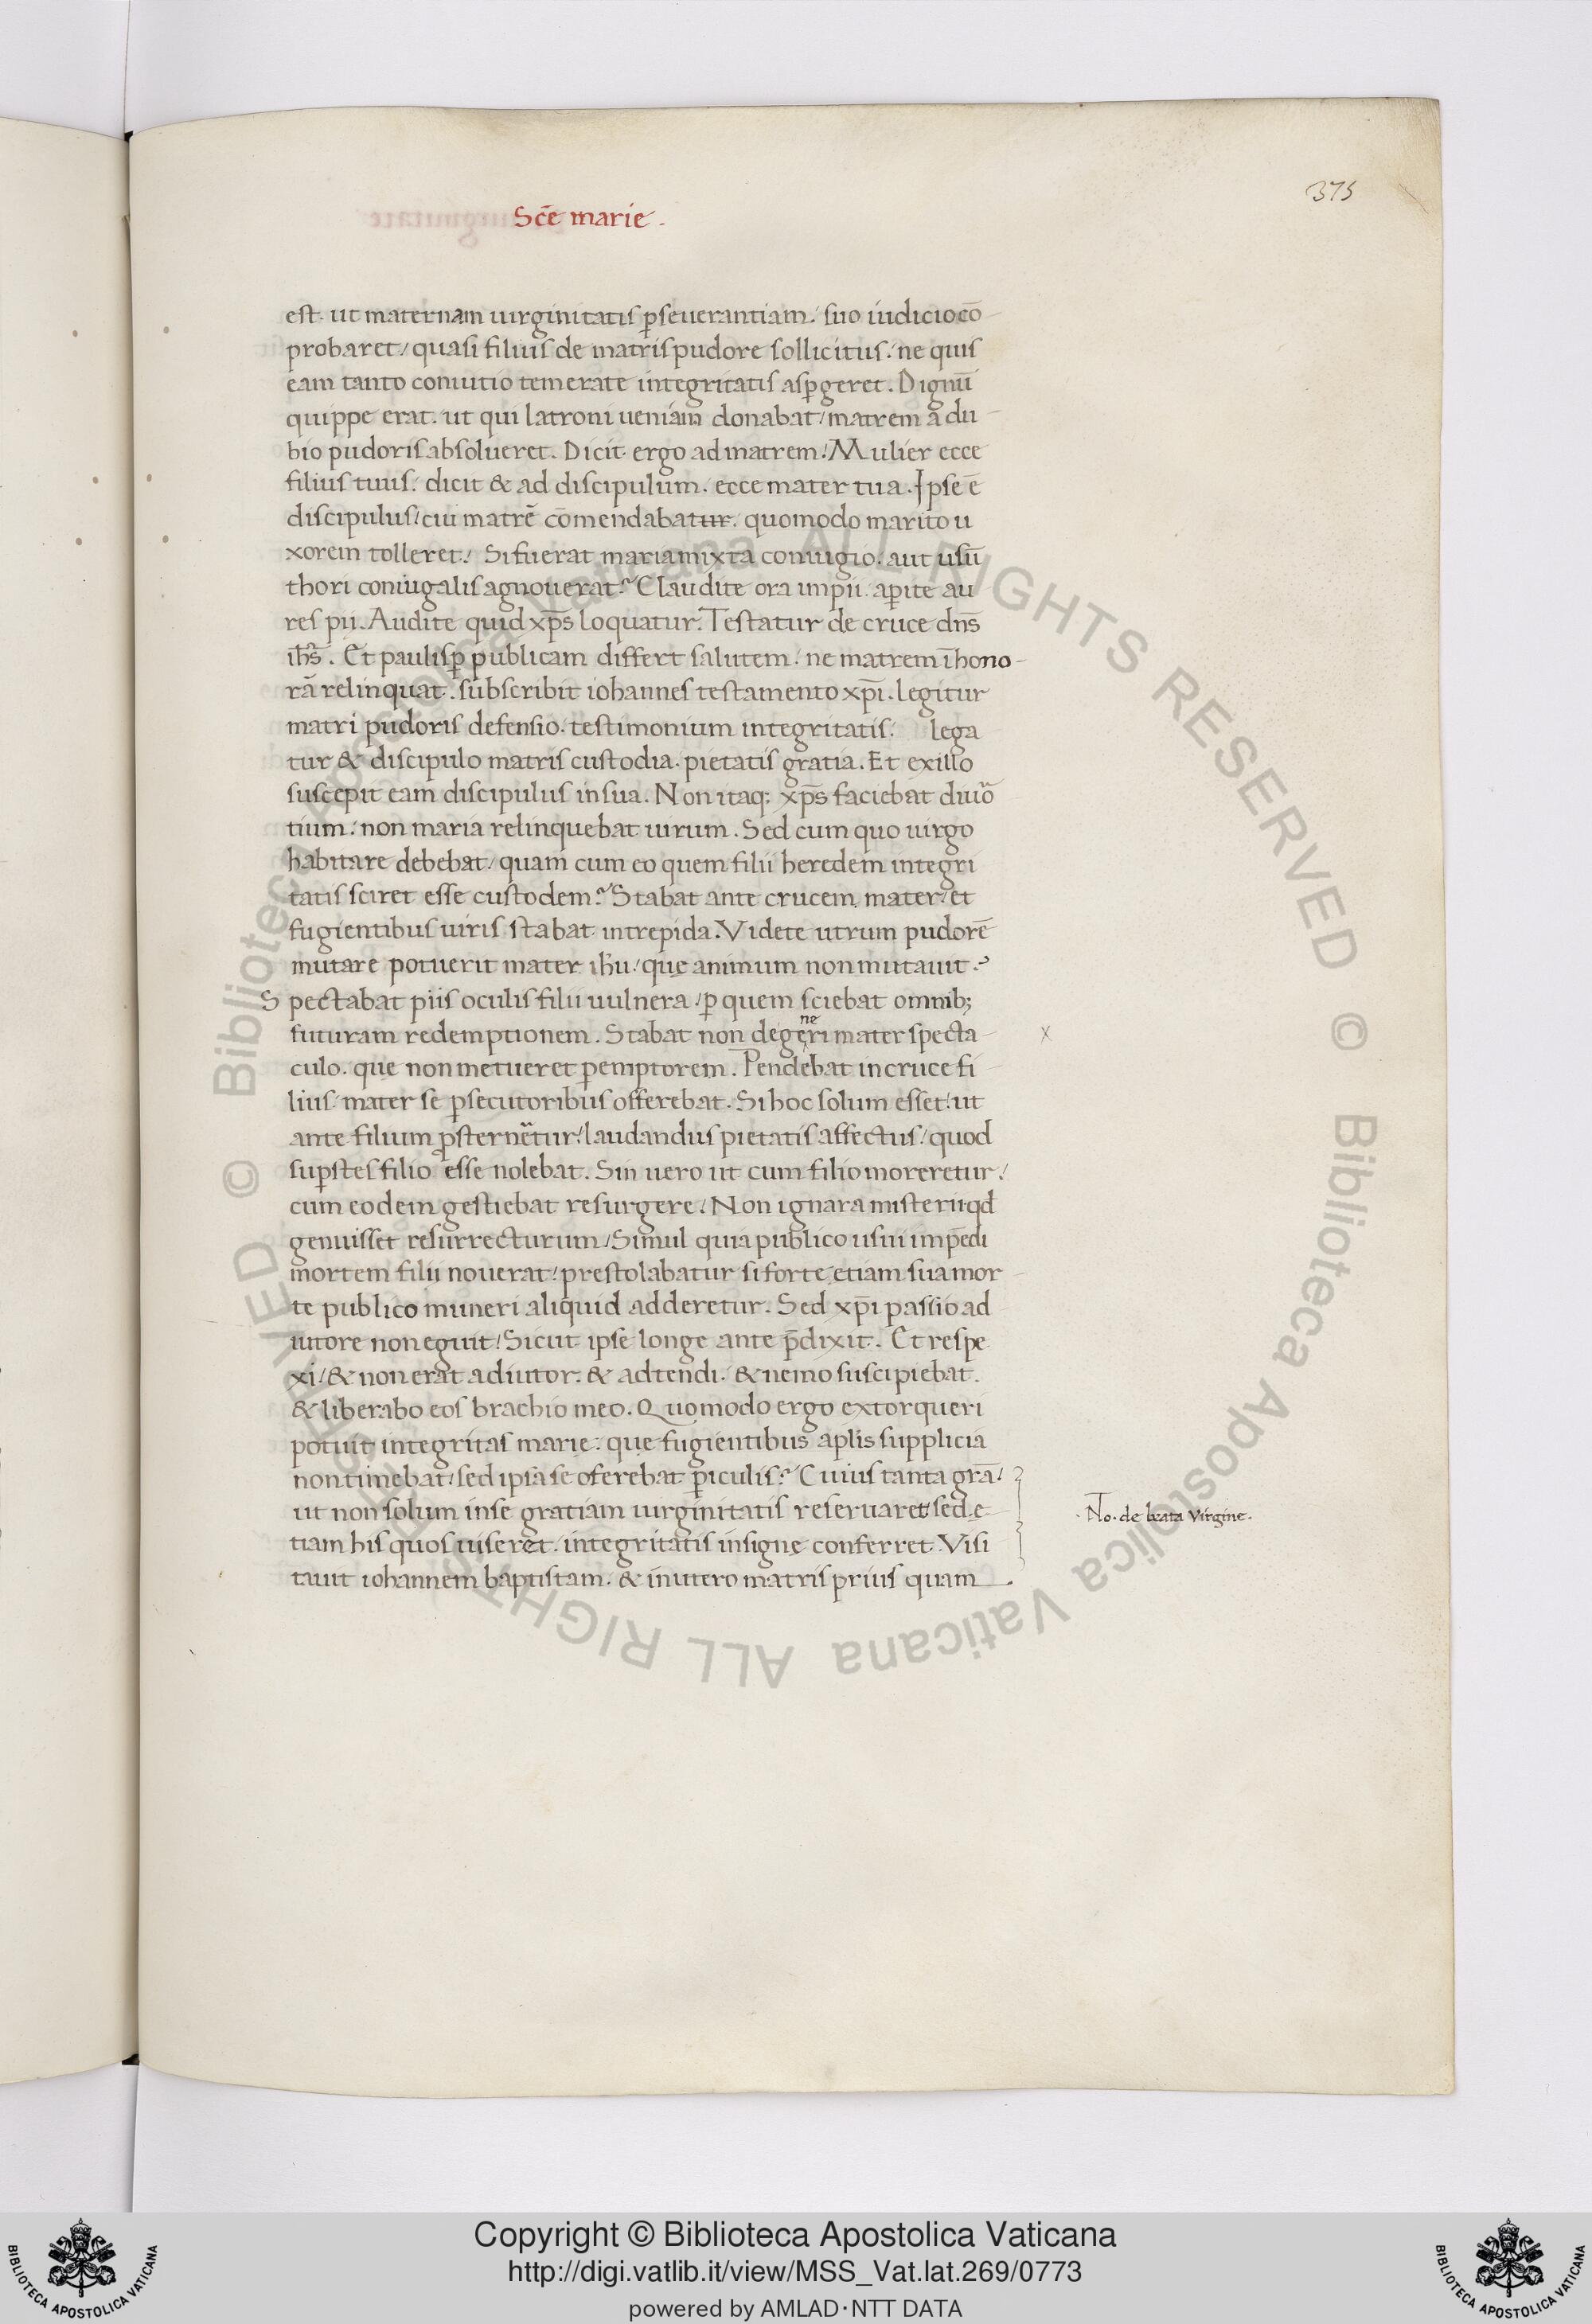 375
Scē marie.
est. ut maternam uirginitatis ꝑseuerantiam. suo iudicio cō
probaret/ quasi filius de matris pudore sollicitus. ne quis
eam tanto conuitio temerate integritatis asꝑgeret. Dignū
quippe erat. ut qui latroni ueniam donabat/ matrem a du
bio pudoris absolueret. Dicit ergo ad matrem/ Mulier ecce
filius tuus. dicit & ad discipulum. ecce mater tua. Ipse ē
discipulus/ cui matrē cōmendabatur. quomodo marito u
xorem tolleret/ Si fuerat maria mixta coniugio. aut usū
thori coniugalis agnouerat? Claudite ora impii. aꝑite au
res pij. Audite quid xp̄s loquatur. Testatur de cruce dn̄s
ih̄s. Et paulisꝑ publicam differt salutem. ne matrem īhono
rā relinquat. subscribit iohannes testamento xp̄i. legitur
matri pudoris defensio. testimonium integritatis. lega
tur & discipulo matris custodia. pietatis gratia. Et ex illo
suscepit eam discipulus in sua. Non itaq; xp̄s faciebat diuo
tium. non maria relinquebat uirum. Sed cum quo uirgo
habitare debebat/ quam cum eo quem filii heredem integri
tatis sciret esse custodem? Stabat ante crucem mater/ et
fugientibus uiris stabat intrepida. Videte utrum pudorē
mutare potuerit mater ih̄u/ quę animum non mutauit?
Spectabat piis oculis filii uulnera/ ꝑ quem sciebat omnib;
ne
futuram redemptionem. Stabat non degeri mater specta
x
culo. que non metueret ꝑemptorem. Pendebat in cruce fi
lius. mater se ꝑsecutoribus offerebat. Si hoc solum esset/ ut
ante filium ꝓsternētur/ laudandus pietatis affectus/ quod
suꝑstes filio esse nolebat. Sin uero ut cum filio moreretur/
cum eodem gestiebat resurgere/ Non ignara misterii qd
genuisset resurrecturum/ Simul quia publico usui impēdi
mortem filij nouerat/ prestolabatur si forte etiam sua mor
te publico muneri aliquid adderetur. Sed xp̄i passio ad
iutore non eguit/ Sicut ipse longe ante p̄dixit. Et respe
xi/ & non erat adiutor. & adtendi. & nemo suscipiebat.
& liberabo eos brachio meo. Quomodo ergo extorqueri
potuit integritas marie. que fugientibus aplis supplicia
non timebat/ sed ipsa se oferebat ꝑiculis? Cuius tanta grā/
ut non solum in se gratiam uirginitatis reseruaret/ sed e
No. de beata Virgine.
tiam his quos uiseret. integritatis insigne conferret. Visi
tauit iohannem baptistam. & in utero matris prius quam
Copyright © Biblioteca Apostolica Vaticana
http://digi.vatlib.it/view/MSS_Vat.lat.269/0773
powered by AMLAD·NTT DATA
BIBLIOTECA APOSTOLICA VATICANA
BIBLIOTECA APOSTOLICA VATICANA
© Biblioteca Apostolica Vaticana ALL RIGHTS RESERVED © Biblioteca Apostolica Vaticana ALL RIGHTS RESERVED